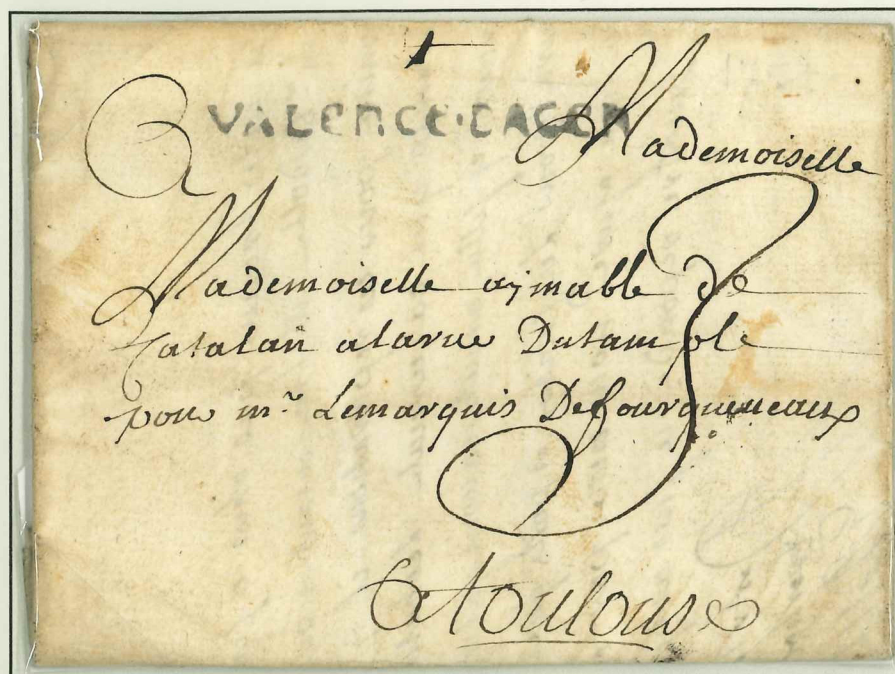 VALENCE·DAGEN
Mademoiselle
Mademoiselle aymable de
Catalan alarue Dutample
pour mr. Lemarquis Defourqueuaux
3
a toulouse